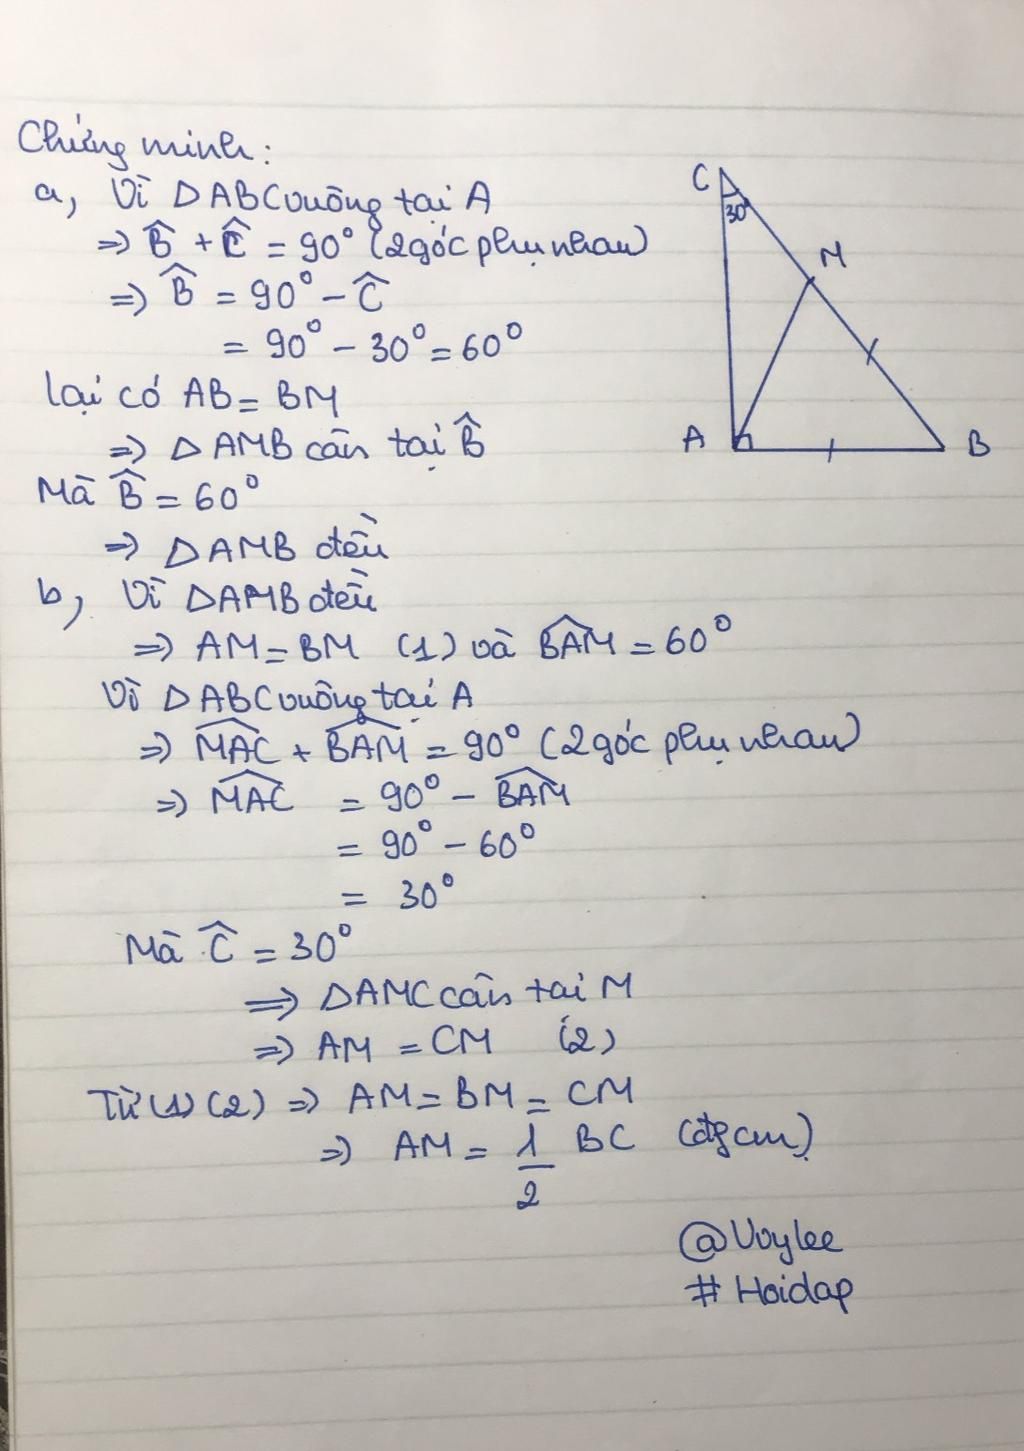 Chứng minh:
a, Vì ΔABC vuông tại A
=> B̂ + Ĉ = 90° (2 góc phụ nhau)
=> B̂ = 90° - Ĉ
= 90° - 30° = 60°
lại có AB = BM
=> ΔAMB cân tại B̂
Mà B̂ = 60°
=> ΔAMB đều
b, Vì ΔAMB đều
=> AM = BM (1) và \widehat{BAM} = 60°
Vì ΔABC vuông tại A
=> \widehat{MAC} + \widehat{BAM} = 90° (2 góc phụ nhau)
=> \widehat{MAC} = 90° - \widehat{BAM}
= 90° - 60°
= 30°
Mà Ĉ = 30°
=> ΔAMC cân tai M
=> AM = CM (2)
Từ (1) (2) => AM = BM = CM
=> AM = 1/2 BC (đfcm)
@Vvylee
# Hoidap
C
30°
M
A
B